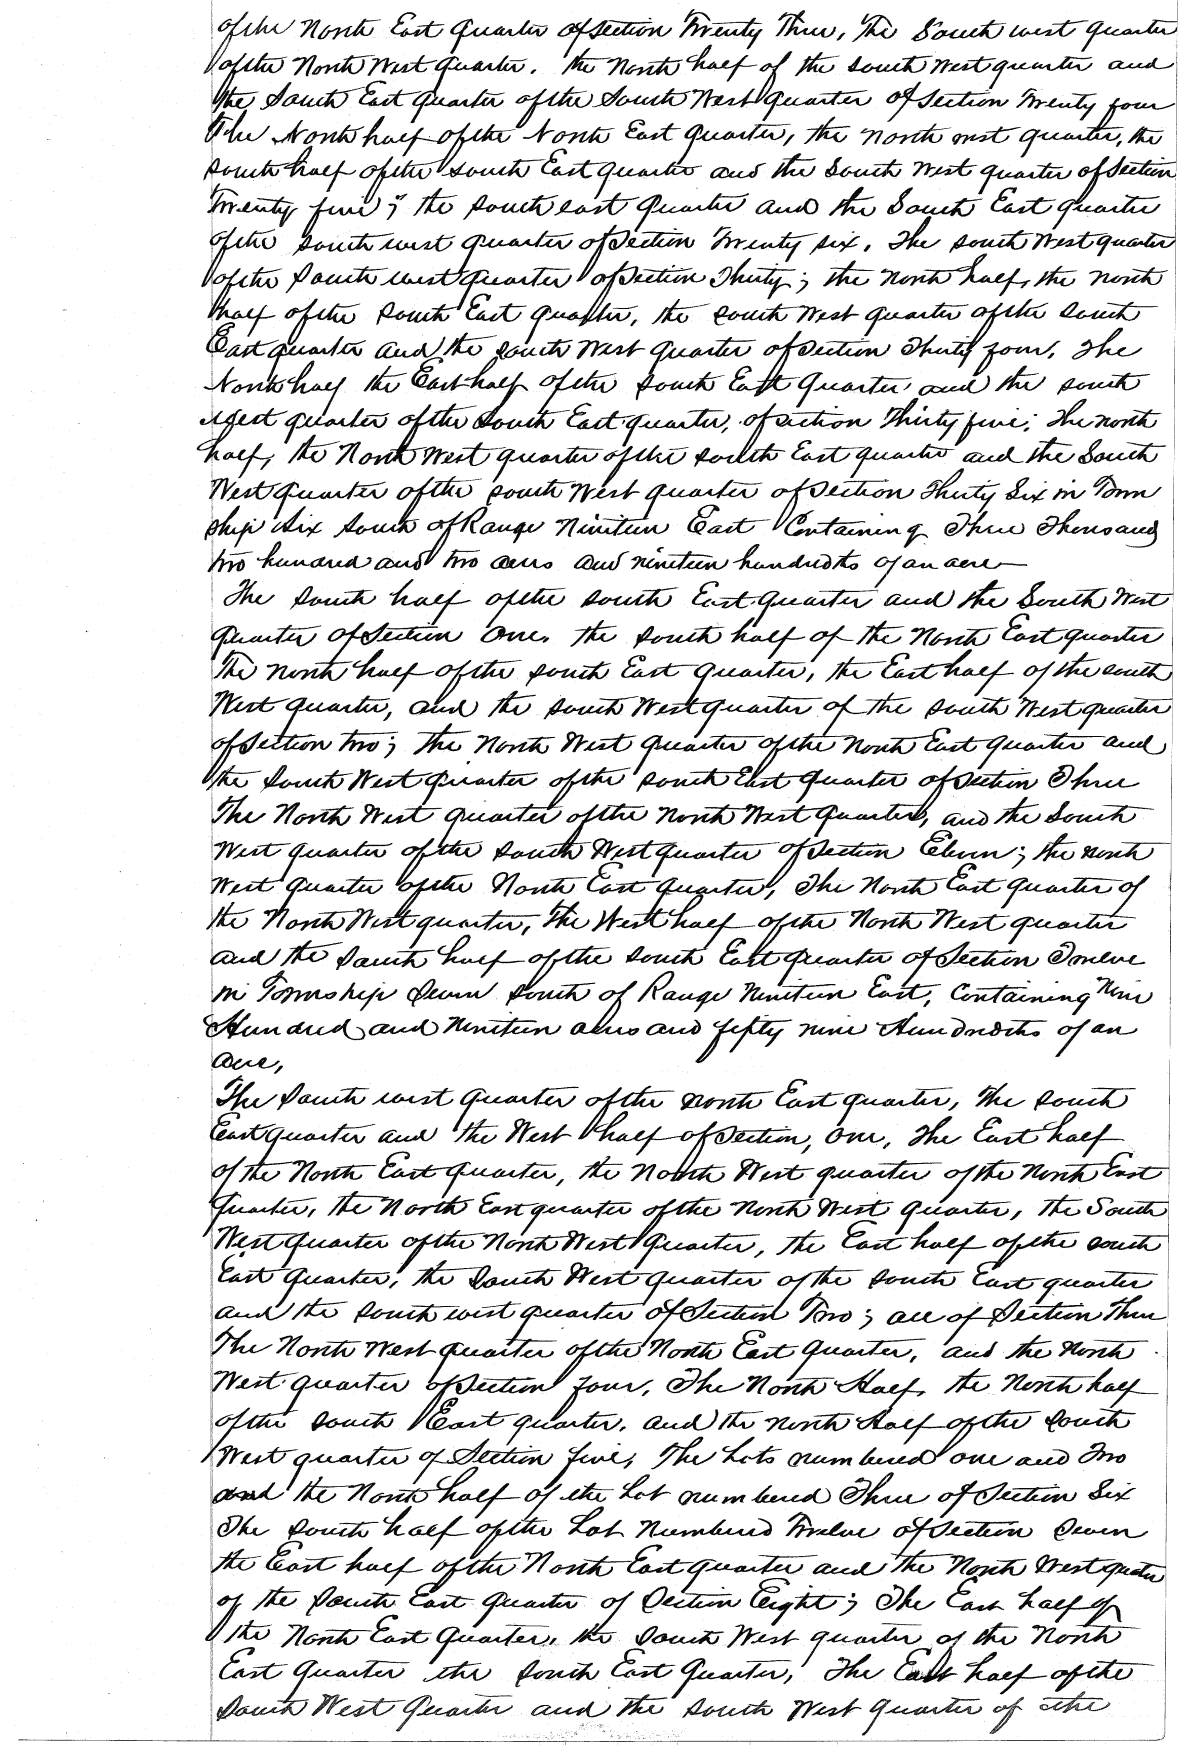 of the North East quarter of Section Twenty Three, The South west quarter
of the North West quarter. the North half of the South West quarter and
the South East quarter of the South West quarter of Section Twenty four
The North half of the North East quarter, the North west quarter, the
South half of the South East quarter and the South West quarter of Section
Twenty five; the South east quarter and the South East quarter
of the South west quarter of Section Twenty six. The South West quarter
of the South west quarter of Section Thirty; the North half, the North
half of the South East quarter, the South West quarter of the South
East quarter and the South West quarter of Section Thirty four. The
North half the East half of the South East quarter and the South
West quarter of the South East quarter, of Section Thirty five; The North
half, the North West quarter of the South East quarter and the South
West quarter of the South West quarter of Section Thirty Six in Town
ship Six South of Range Nineteen East Containing Three Thousand
two hundred and two acres and nineteen hundredths of an acre
The South half of the South East quarter and the South West
quarter of Section One. the South half of the North East quarter
The North half of the South East quarter, the East half of the South
West quarter, and the South West quarter of the South West quarter
of Section two; the North West quarter of the North East quarter and
the South West quarter of the South East quarter of Section Three
The North West quarter of the North West quarter, and the South
West quarter of the South West quarter of Section Eleven; the North
West quarter of the North East quarter, The North East quarter of
the North West quarter, The West half of the North West quarter
and the South half of the South East quarter of Section Twelve
in Township Seven South of Range Nineteen East, Containing Nine
Hundred and Nineteen acres and fifty nine Hundredths of an
acre,
The South west quarter of the North East quarter, The South
East quarter and the West half of Section, One, The East half
of the North East quarter, the North West quarter of the North East
quarter, the North East quarter of the North West quarter, the South
West quarter of the North West quarter, the East half of the South
East quarter, the South West quarter of the South East quarter
and the South west quarter of Section Two; all of Section Three
The North West quarter of the North East quarter, and the North
West quarter of Section four, The North Half, the North half
of the South East quarter, and the North Half of the South
West quarter of Section five, The Lots numbered one and Two
and the North half of the Lot numbered Three of Section Six
The South half of the Lot Numbered Twelve of Section Seven
the East half of the North East quarter and the North West quarter
of the South East quarter of Section Eight; The East half of
the North East quarter, the South West quarter of the North
East quarter the South East quarter, The East half of the
South West quarter and the South West quarter of the